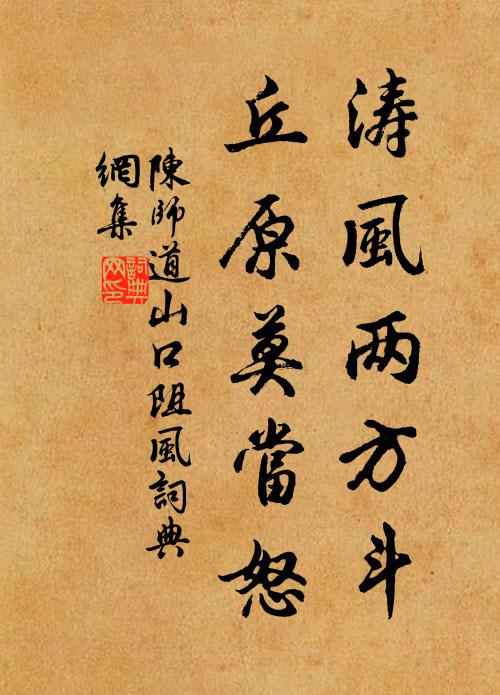 涛風两方斗
丘原莫當怒
陳師道山口阻風詞典
網集
詞典
网印